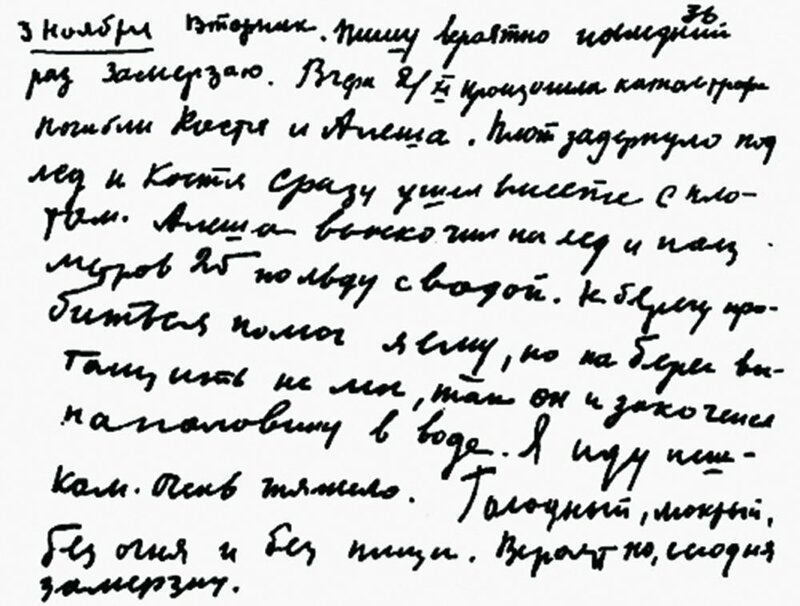 36
3 Ноября Вторник. Пишу вероятно последний
раз Замерзаю. Вчера 2/XI произошла катастрофа
Погибли Костя и Алеша. Плот задернуло под
лед и Костя сразу ушел вместе с пло-
том. Алеша выскочил на лед и полз
метров 25 по льду с водой. К берегу про-
биться помог я ему, но на берег вы-
тащить не мог, так он и закоченел
наполовину в воде. Я иду пеш-
ком. Очень тяжело. Голодный, мокрый,
без огня и без пищи. Вероятно, сегодня
замерзну.